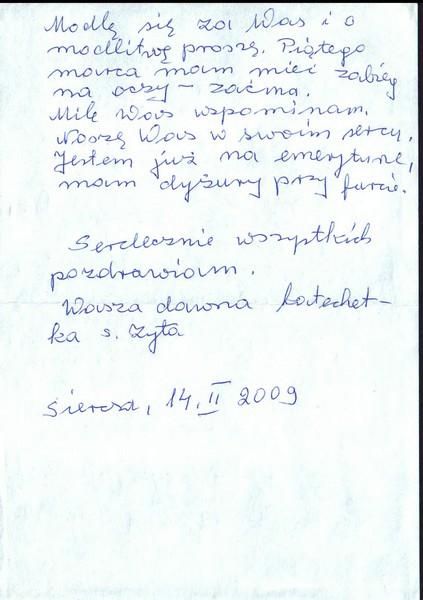 Modlę się za Was i o
modlitwę proszę. Piątego
marca mam mieć zabieg
na oczy – zaćma.
Mile Was wspominam.
Noszę Was w swoim sercu.
Jestem już na emeryturze,
mam dyżury przy furcie.
Serdecznie wszystkich
pozdrawiam.
Wasza dawna katechet-
ka s. Zyta
Siercza, 14. II 2009